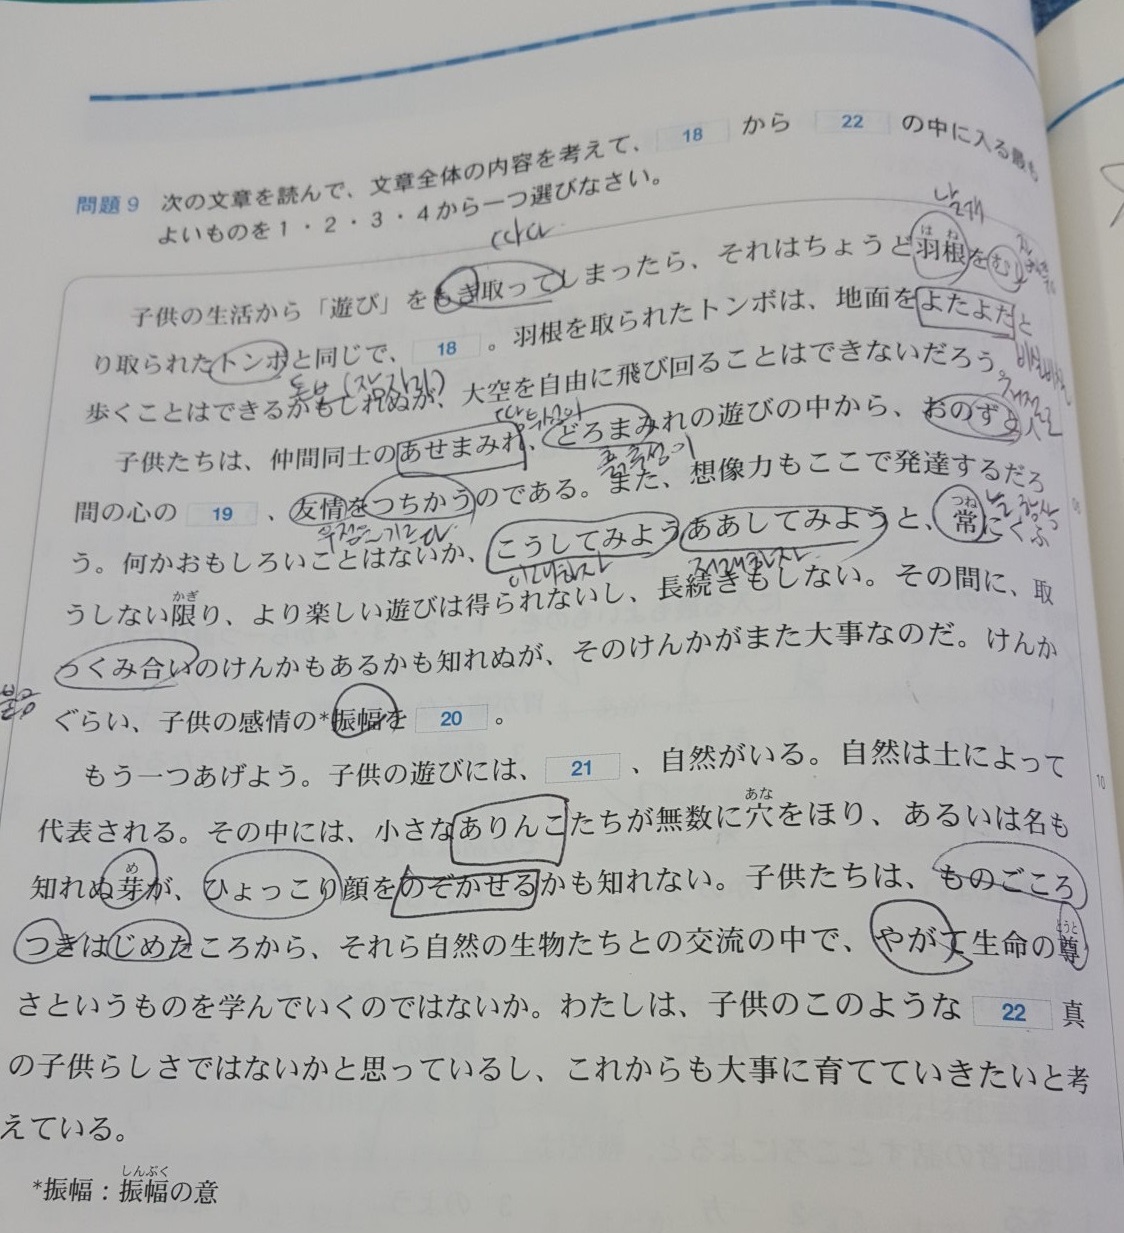 問題9 次の文章を読んで、文章全体の内容を考えて、 18 から 22 の中に入る最も
よいものを1・2・3・4から一つ選びなさい。
날개
따다
子供の生活から「遊び」をもぎ取ってしまったら、それはちょうど羽根をむし
はね
り取られたトンボと同じで、 18 。羽根を取られたトンボは、地面をよたよたと
歩くことはできるかもしれぬが、大空を自由に飛び回ることはできないだろう。
子供たちは、仲間同士のあせまみれ、どろまみれの遊びの中から、おのずと人
間の心の 19 、友情をつちかうのである。また、想像力もここで発達するだろ
う。何かおもしろいことはないか、こうしてみようああしてみようと、常にくふ
つね
うしない限り、より楽しい遊びは得られないし、長続きもしない。その間に、取
かぎ
っくみ合いのけんかもあるかも知れぬが、そのけんかがまた大事なのだ。けんか
ぐらい、子供の感情の*振幅を 20 。
もう一つあげよう。子供の遊びには、 21 、自然がいる。自然は土によって
代表される。その中には、小さなありんこたちが無数に穴をほり、あるいは名も
あな
知れぬ芽が、ひょっこり顔をのぞかせるかも知れない。子供たちは、ものごころ
め
つきはじめたころから、それら自然の生物たちとの交流の中で、やがて生命の尊
とうと
さというものを学んでいくのではないか。わたしは、子供のこのような 22 真
の子供らしさではないかと思っているし、これからも大事に育てていきたいと考
えている。
*振幅：振幅の意
しんぷく
10